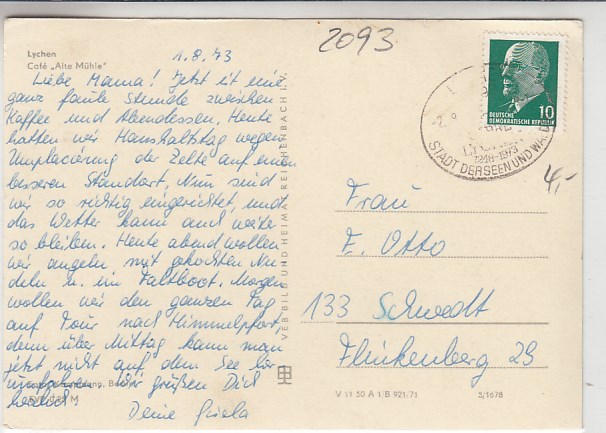 Lychen
Café „Alte Mühle"
1.8.73
2093
Liebe Mama! Jetzt ist eine
ganz faule Stunde zwischen
Kaffee und Abendessen. Heute
hatten wir Haushaltstag wegen
Umplacierung der Zelte auf einen
besseren Standort. Nun sind
wir so richtig eingerichtet, und
das Wetter kann auch weiter
so bleiben. Heute abend wollen
wir angeln mit gekochten Nu-
deln u. im Faltboot. Morgen
wollen wir den ganzen Tag
auf Tour nach Himmelpfort,
denn über Mittag kann man
jetzt nicht auf dem See
Wir grüßen Dich
Deine Gisela
VEB BILD UND HEIMAT REICHENBACH I. V.
DEUTSCHE
DEMOKRATISCHE REPUBLIK
10
1248-1973
STADT DER SEEN UND
4,-
Frau
E. Otto
133 Schwedt
Flinkenberg 29
V 11 50 A 1/B 921/71
5/1678